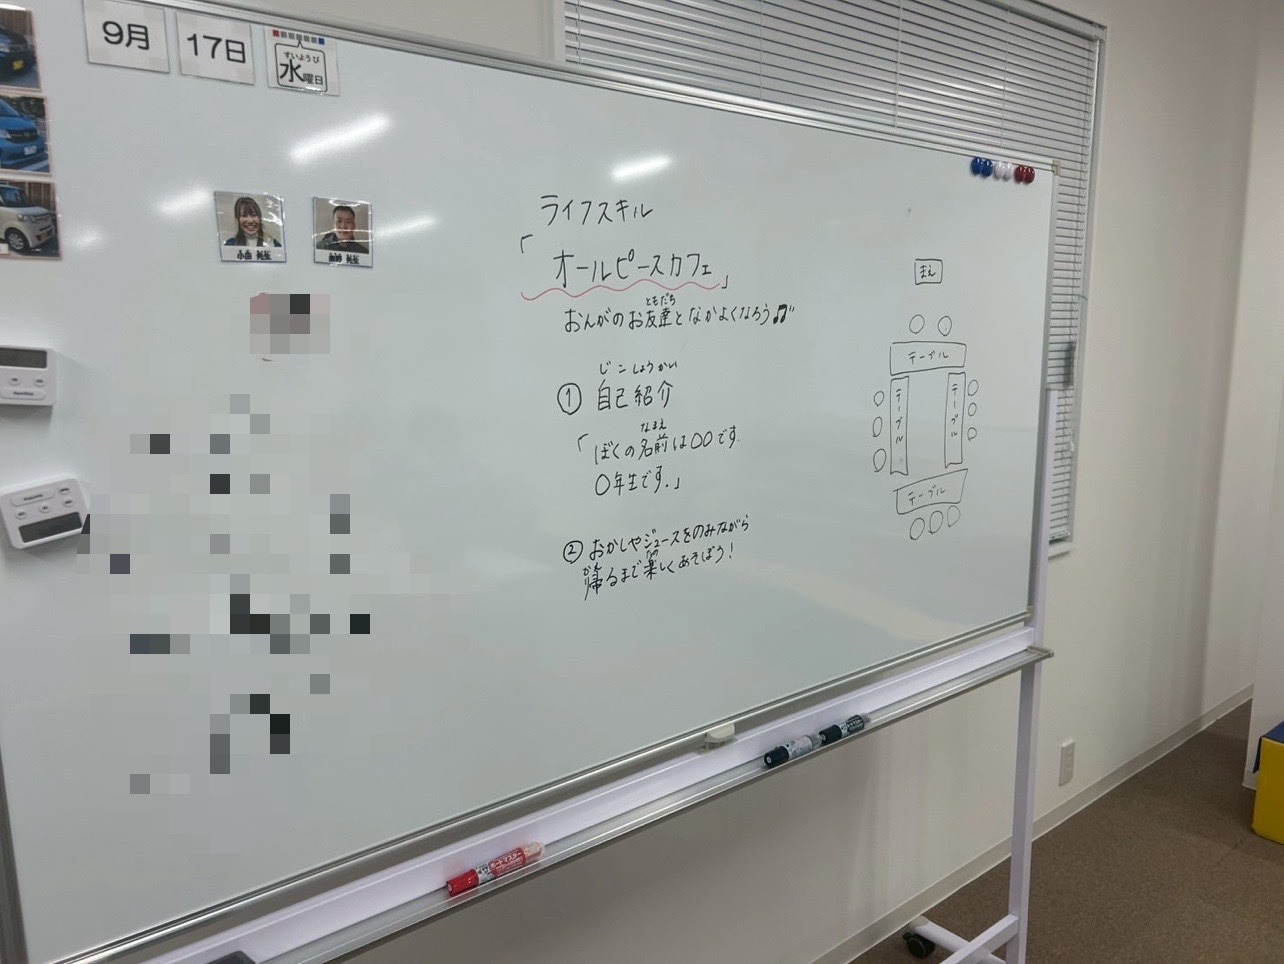 9月
17日
すいようび
水曜日
ライフスキル
「オールピースカフェ」
ともだち
おんがのお友達となかよくなろう♫
じこしょうかい
① 自己紹介
なまえ
「ぼくの名前は〇〇です
〇年生です。」
② おかしやジュースをのみながら
かえ たの
帰るまで楽しくあそぼう!
まえ
テーブル
テーブル
テーブル
テーブル
ボードマスター